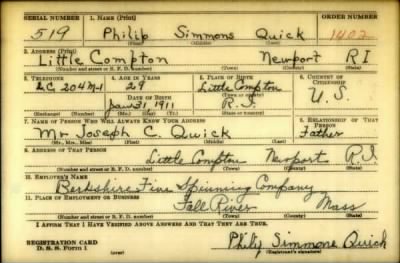 SERIAL NUMBER 1. NAME (Print) ORDER NUMBER
519 Philip Simmons Quick 1402
(First) (Middle) (Last)
2. ADDRESS (Print)
Little Compton Newport RI
(Number and street or R. F. D. number) (Town) (County) (State)
3. TELEPHONE 4. AGE IN YEARS 5. PLACE OF BIRTH 6. COUNTRY OF CITIZENSHIP
L.C. 204M-1 29 Little Compton
DATE OF BIRTH (Town or county) U.S.
Jan. 31, 1911 R.I.
(Exchange) (Number) (Mo.) (Day) (Yr.) (State or country)
7. NAME OF PERSON WHO WILL ALWAYS KNOW YOUR ADDRESS 8. RELATIONSHIP OF THAT PERSON
Mr Joseph C. Quick Father
(Mr., Mrs., Miss) (First) (Middle) (Last)
9. ADDRESS OF THAT PERSON
Little Compton Newport R.I.
(Number and street or R. F. D. number) (Town) (County) (State)
10. EMPLOYER'S NAME
Berkshire Fine Spinning Company
11. PLACE OF EMPLOYMENT OR BUSINESS
Fall River Mass
(Number and street or R. F. D. number) (Town) (County) (State)
I AFFIRM THAT I HAVE VERIFIED ABOVE ANSWERS AND THAT THEY ARE TRUE.
REGISTRATION CARD
D. S. S. Form 1 (over) Philip Simmons Quick
(Registrant's signature)